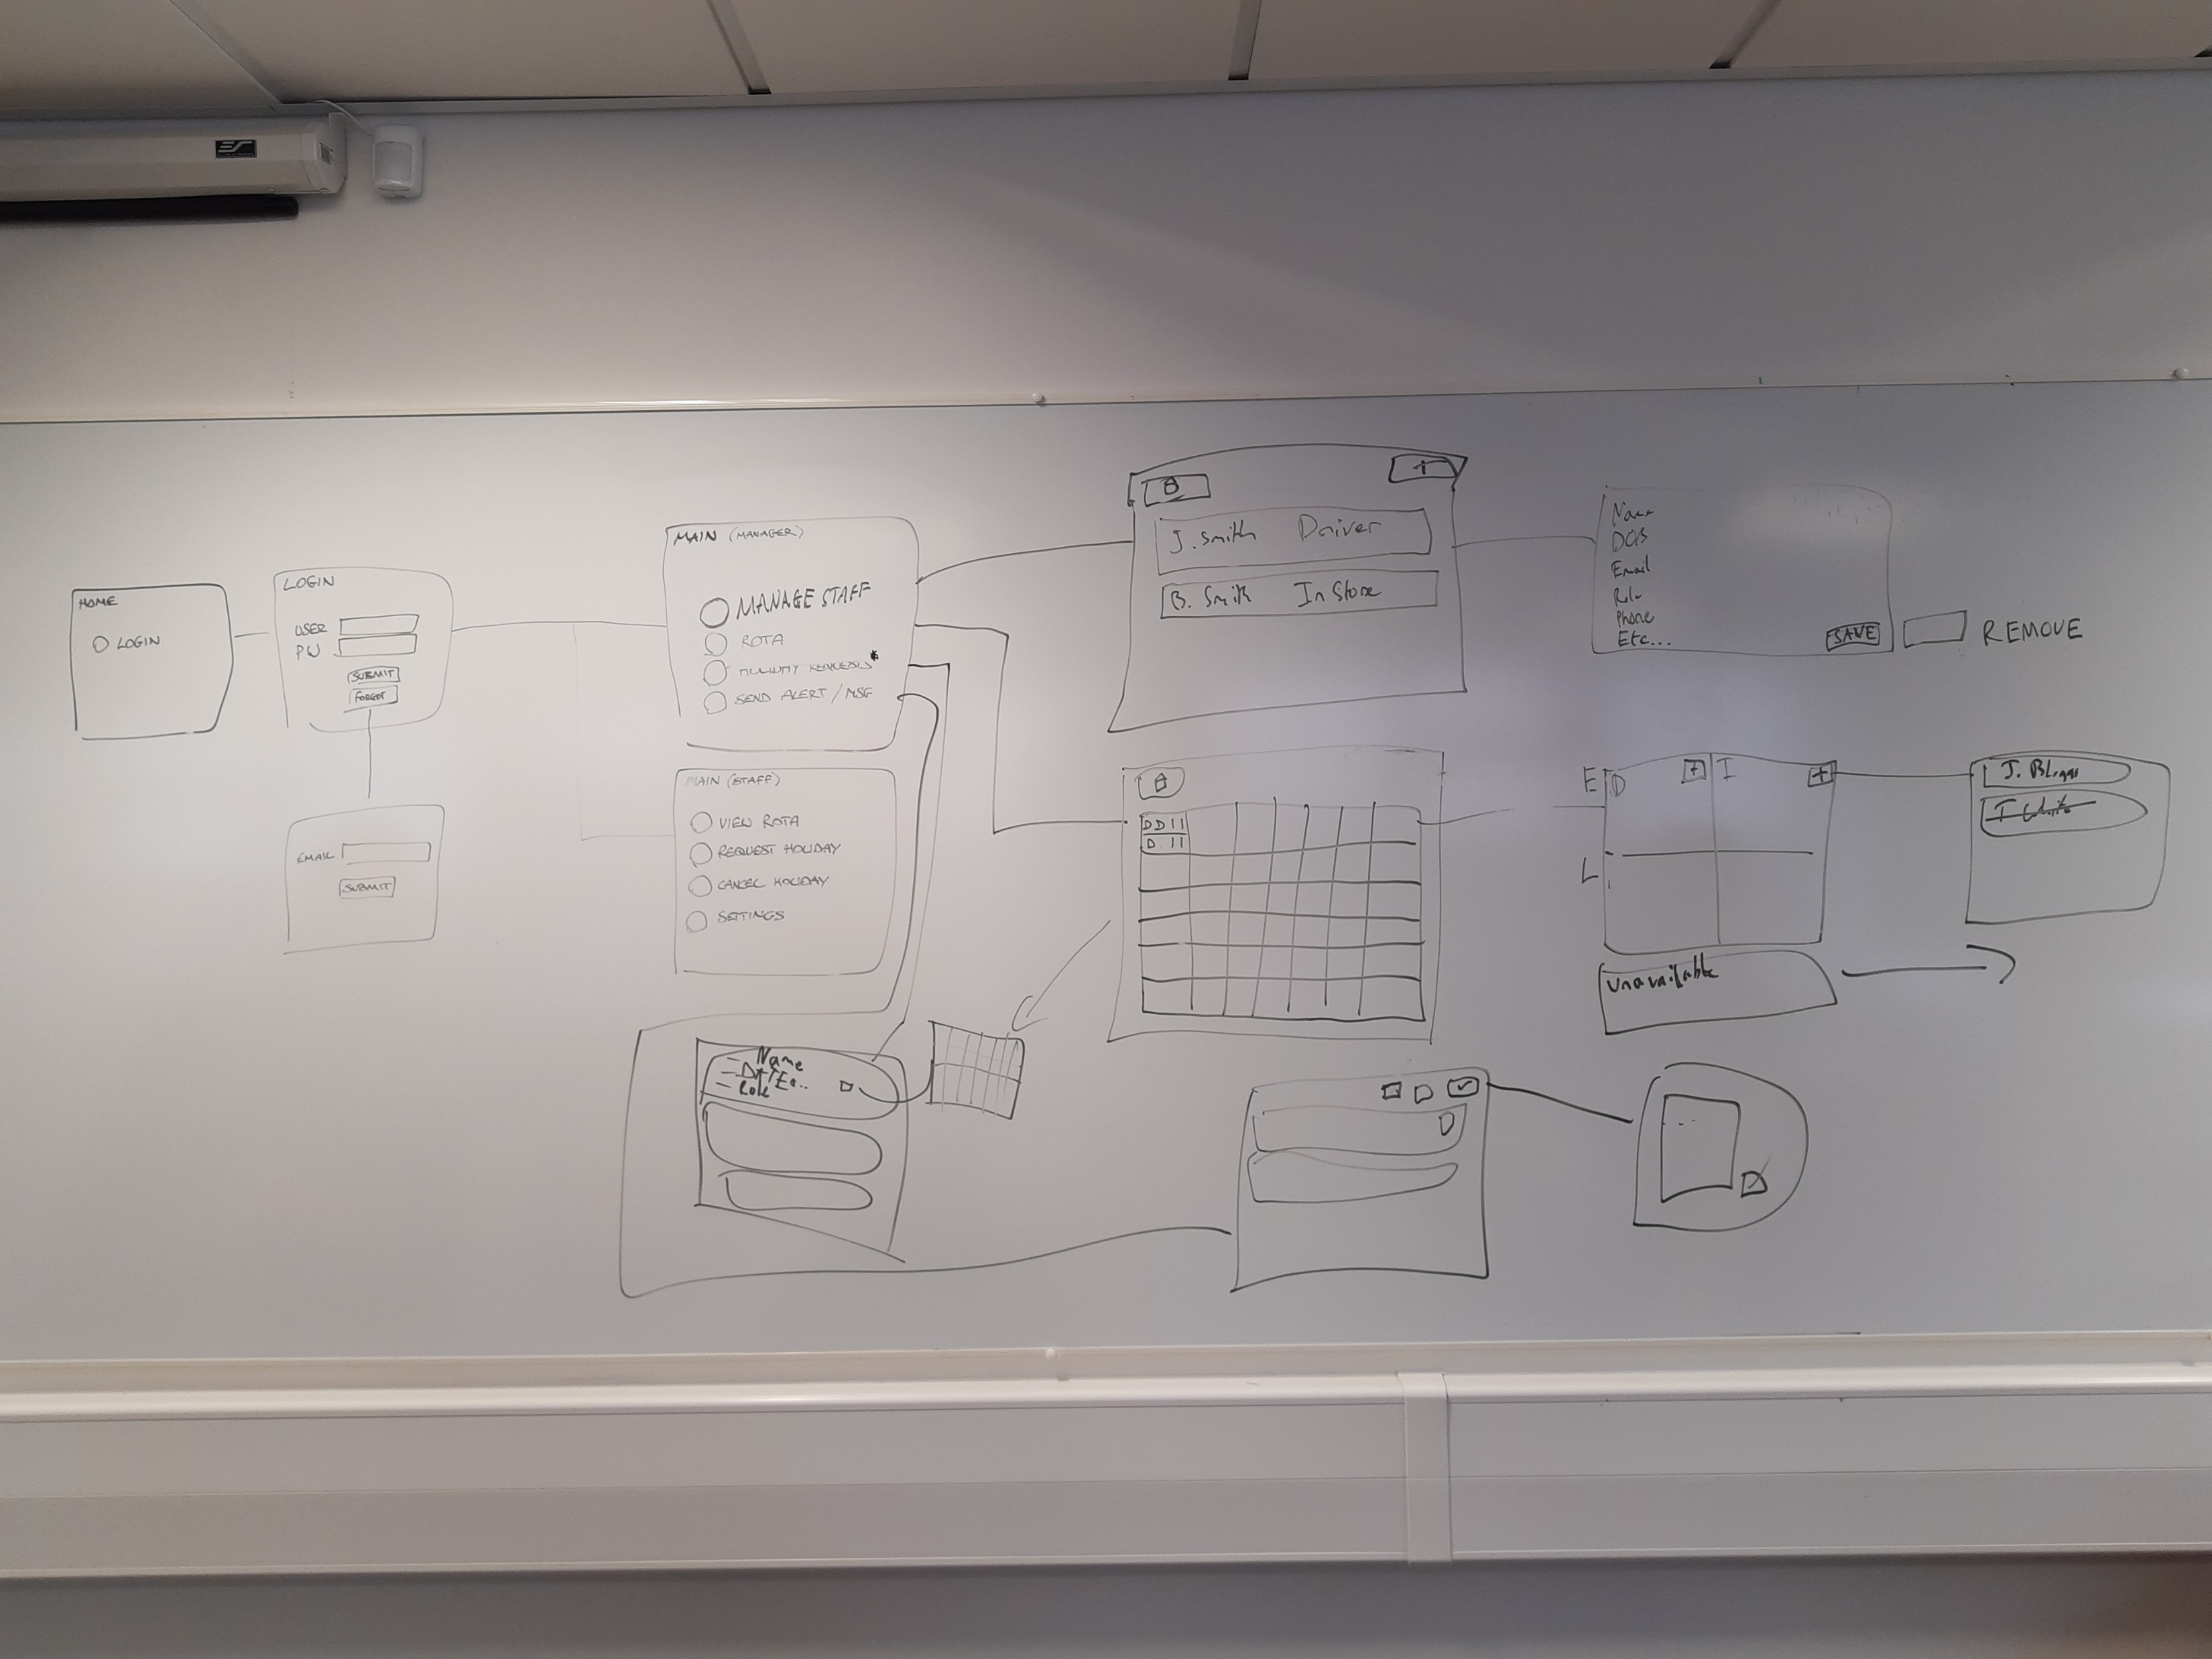 ES
HOME
LOGIN
LOGIN
USER
PW
SUBMIT
FORGOT
EMAIL
SUBMIT
MAIN (MANAGER)
MANAGE STAFF
ROTA
HOLIDAY REQUESTS*
SEND ALERT / MSG
MAIN (STAFF)
VIEW ROTA
REQUEST HOLIDAY
CANCEL HOLIDAY
SETTINGS
+
J. Smith Driver
B. Smith InStore
Name
DOB
Email
Role
Phone
Etc...
SAVE
REMOVE
DD II
D II
E D + I +
L
Unavailable
J. Bloggs
- Name
- Role